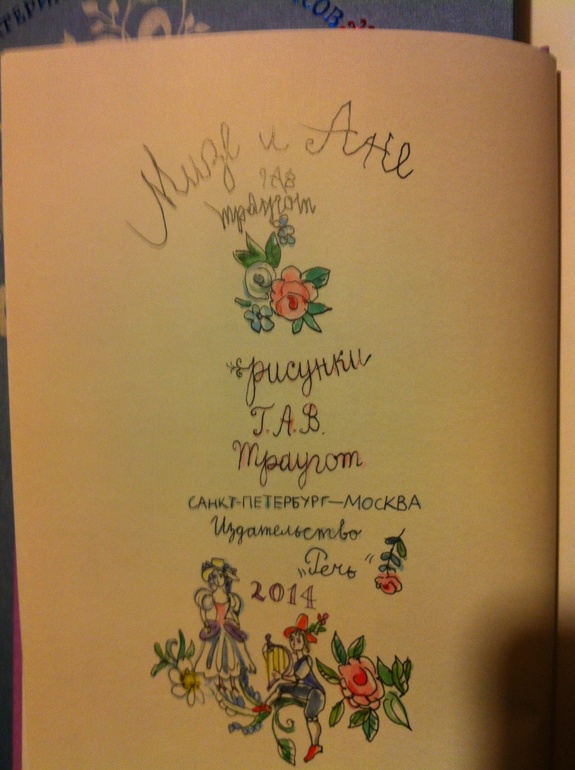 и Ане
ГАВ
Траугот
рисунки
Г.А.В.
Траугот
САНКТ-ПЕТЕРБУРГ—МОСКВА
Издательство
„Речь“
2014